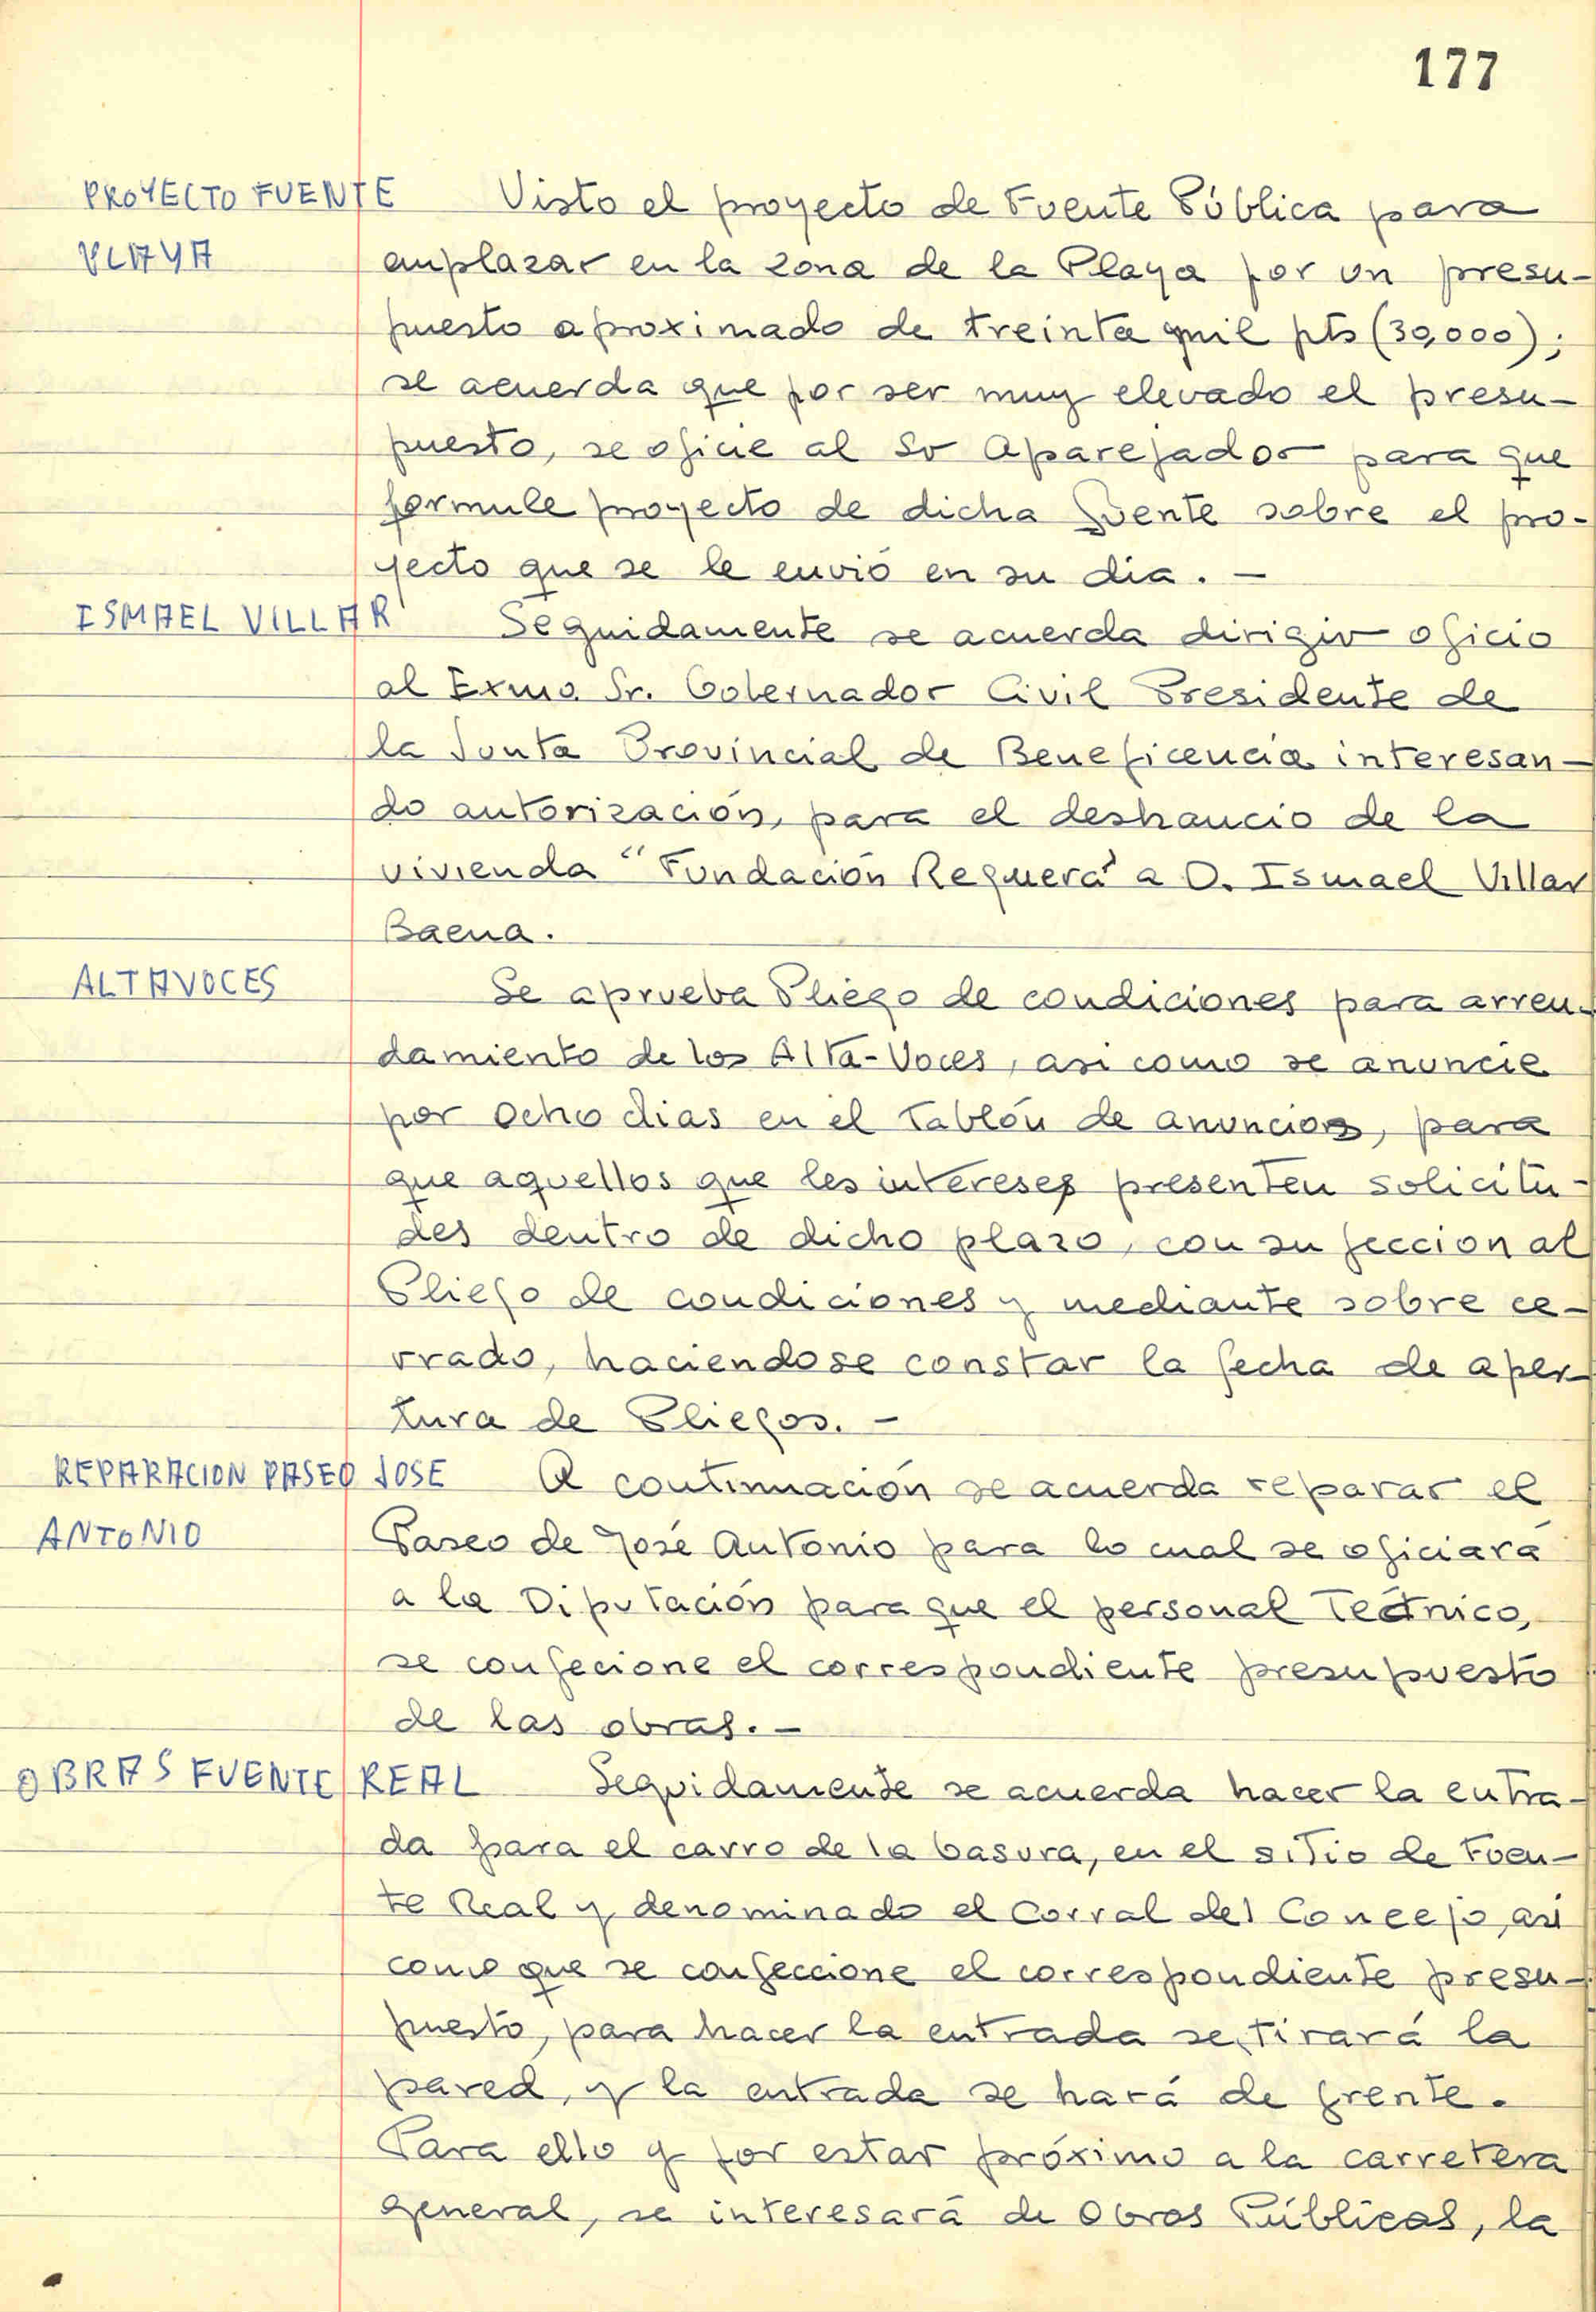 177
PROYECTO FUENTE Visto el proyecto de Fuente Pública para
PLAYA emplazar en la zona de la Playa por un presu-
puesto aproximado de treinta mil pts (30,000);
se acuerda que por ser muy elevado el presu-
puesto, se oficie al Sr Aparejador para que
formule proyecto de dicha fuente sobre el pro-
yecto que se le envió en su dia. -
ISMAEL VILLAR Seguidamente se acuerda dirigir oficio
al Exmo. Sr. Gobernador Civil Presidente de
la Junta Provincial de Beneficencia interesan-
do autorización, para el deshaucio de la
vivienda "Fundación Requera" a D. Ismael Villar
Baena.
ALTAVOCES Se aprueba Pliego de condiciones para arren-
damiento de los Alta-Voces, asi como se anuncie
por ocho dias en el tablón de anuncios, para
que aquellos que les intereses presenten solicitu-
des dentro de dicho plazo, con su jeccion al
Pliego de condiciones y mediante sobre ce-
rrado, haciendose constar la fecha de aper
tura de Pliegos. -
REPARACION PASEO JOSE A continuación se acuerda reparar el
ANTONIO Paseo de José Antonio para lo cual se oficiará
a la Diputación para que el personal Tecnico,
se confecione el correspondiente presupuesto
de las obras. -
OBRAS FUENTE REAL Seguidamente se acuerda hacer la entra-
da para el carro de la basura, en el sitio de Fuen-
te Real y denominado el Corral del Concejo, asi
como que se confeccione el correspondiente presu-
puesto, para hacer la entrada se tirará la
pared, y la entrada se hará de frente.
Para ello y por estar próximo a la carretera
general, se interesará de Obras Públicas, la